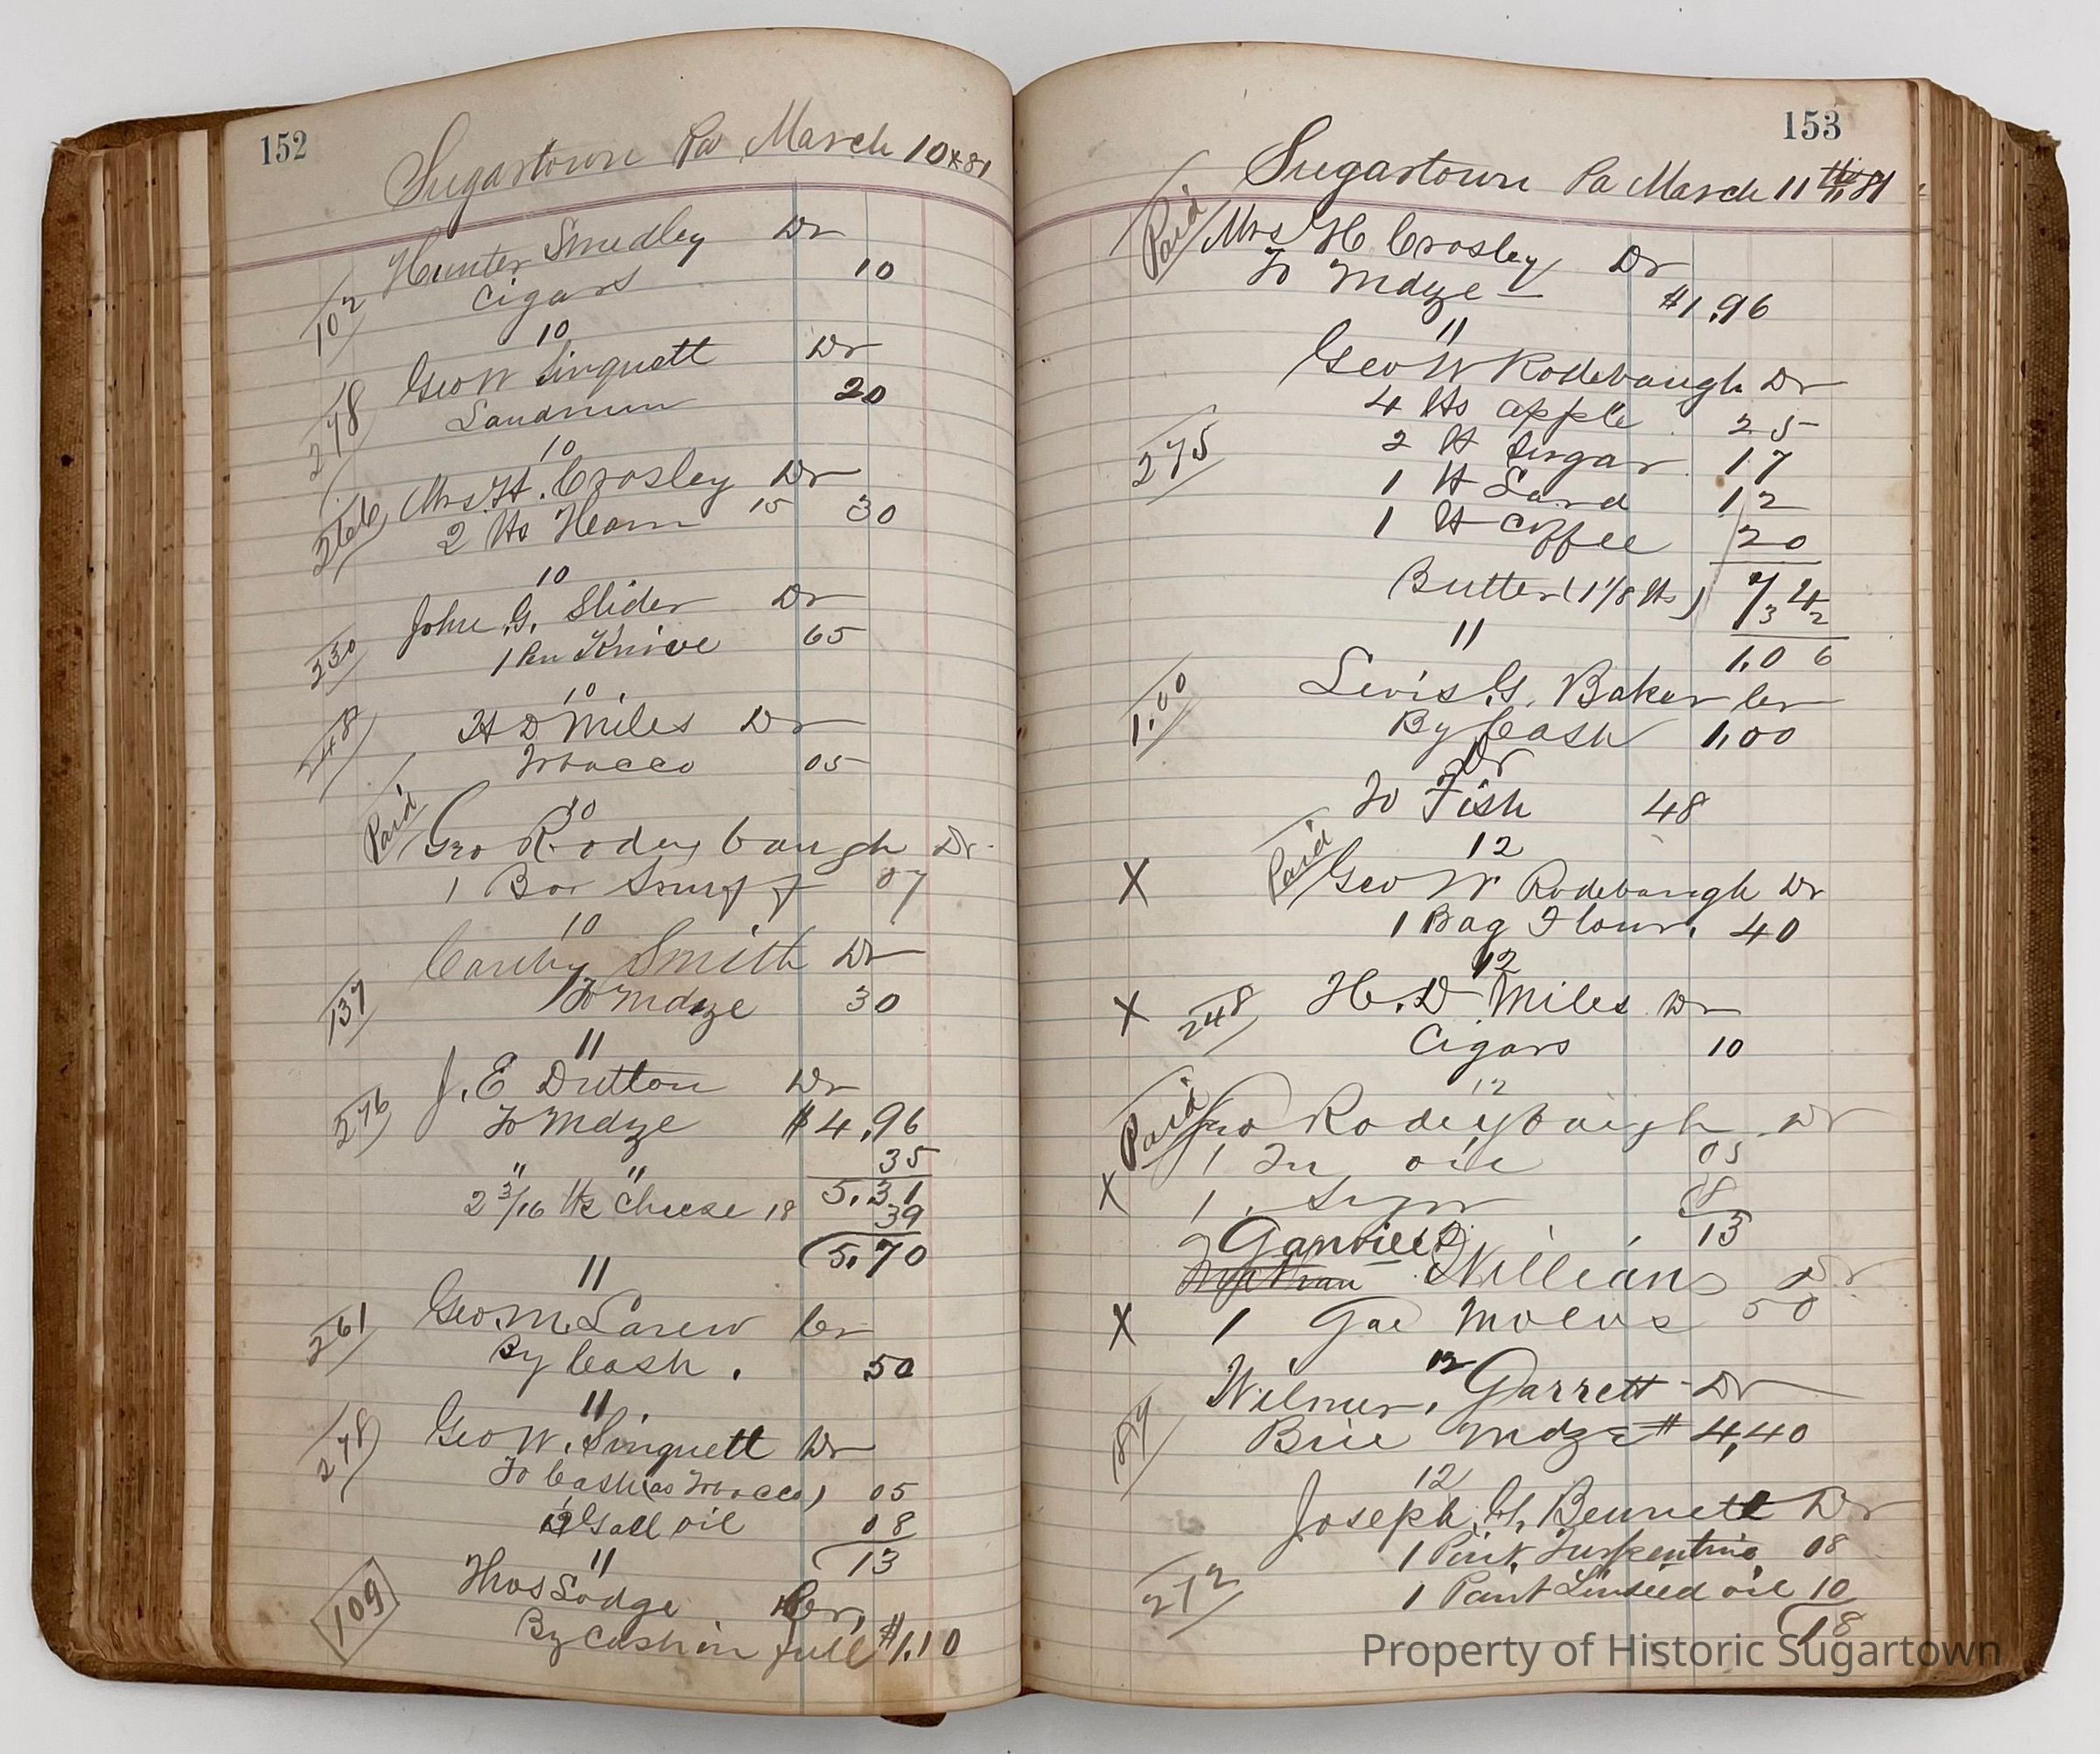 152
Sugartown Pa March 10th 81
Hunter Smedley Dr
102
Cigars 10
10
Geo W Singuett Dr
278
Sandrum 20
10
266 Mrs. H. Crosley Dr
2 lbs Ham 15 30
10
John G. Slider Dr
230
1 Pen Knive 65
10
248 H D Miles Dr
Tobacco 05
10
Paid Geo Rodeybaugh Dr
1 Box Snuff 07
10
Smith Dr
137 To Mdze 30
11
J. E Dutton Dr
276 To Mdze $4.96
" " 35
5.31
2 3/16 lbs Cheese 18 39
5.70
11
261 Geo. M. Larew Cr
By Cash. 50
11
278 Geo W. Singuett Dr
To Cash (as Tobacco) 05
Gall oil 08
13
11
109 Thos Lodge Cr,
By Cash in full $1.10
153
Sugartown Pa March 11th 81
Paid Mrs H Crosley Dr
To Mdze — $1.96
11
Geo W Rodebaugh Dr
4 lbs apple 25
275 2 lb Sugar 17
1 lb Lard 12
1 lb Coffee 20
74
Butter (1 1/8 lbs) 32
1.06
11
1.00 Lewis G. Baker Cr
By Cash 1,00
Dr
To Fish 48
12
X Paid Geo W Rodebaugh Dr
1 Bag Flour. 40
12
X 248 H. D Miles Dr
Cigars 10
12
Paid Geo Rodeybaugh Dr
1 oil 05
X 1 8
13
Willians Dr
X 1 Gal Molas 50
12
Wilmer. Garrett Dr
Mdze $4,40
12
Joseph H. Bennett Dr
1 Pint Turpentine 08
272 1 Paint Linseed oil 10
18
Property of Historic Sugartown